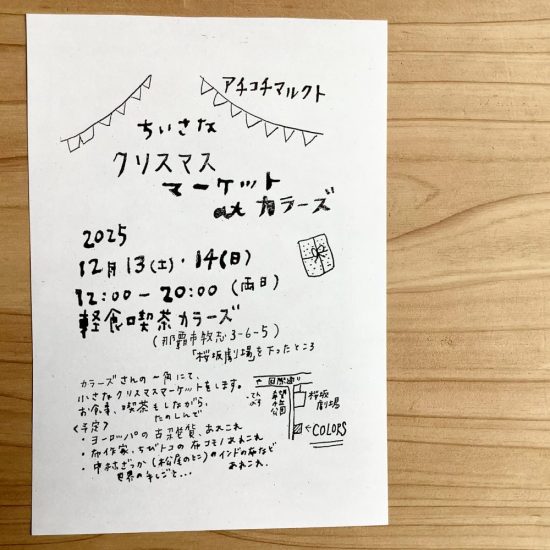 アチコチマルクト
ちいさな
クリスマス
マーケット
at カラーズ
2025
12月13(土)・14(日)
12:00-20:00 (両日)
軽食喫茶カラーズ
(那覇市牧志3-6-5)
「桜坂劇場」を下ったところ
カラーズさんの一角にて、
小さなクリスマスマーケットをします。
お食事、喫茶もしながら、
たのしんで
<予定>
・ヨーロッパの古い雑貨、あれこれ
・布作家、ちびトコの布コモノあれこれ
・中村ざっか(松尾のとこ)のインドの布など
世界の手しごと... あれこれ、
国際通り
てんぶす
希望ヶ丘公園
桜坂劇場
←COLORS